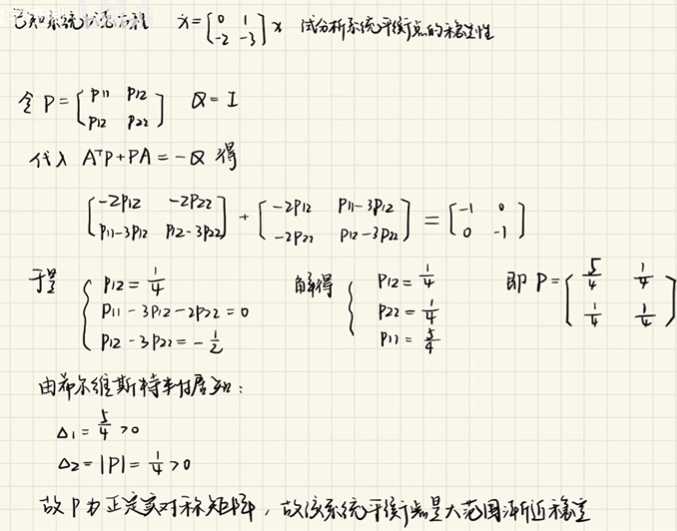 已知系统状态方程 ẋ = [0 1; -2 -3] x 试分析系统平衡点的稳定性
令 P = [P11 P12; P12 P22] Q = I
代入 AᵀP + PA = -Q 得
[-2P12 -2P22; P11-3P12 P12-3P22] + [-2P12 P11-3P12; -2P22 P12-3P22] = [-1 0; 0 -1]
于是 { P12 = 1/4 ; P11 - 3P12 - 2P22 = 0 ; P12 - 3P22 = -1/2 解得 { P12 = 1/4 ; P22 = 1/4 ; P11 = 5/4 即 P = [5/4 1/4; 1/4 1/4]
由希尔维斯特判据知:
Δ1 = 5/4 > 0
Δ2 = |P| = 1/4 > 0
故 P 为正定实对称矩阵,故该系统平衡点是大范围渐近稳定